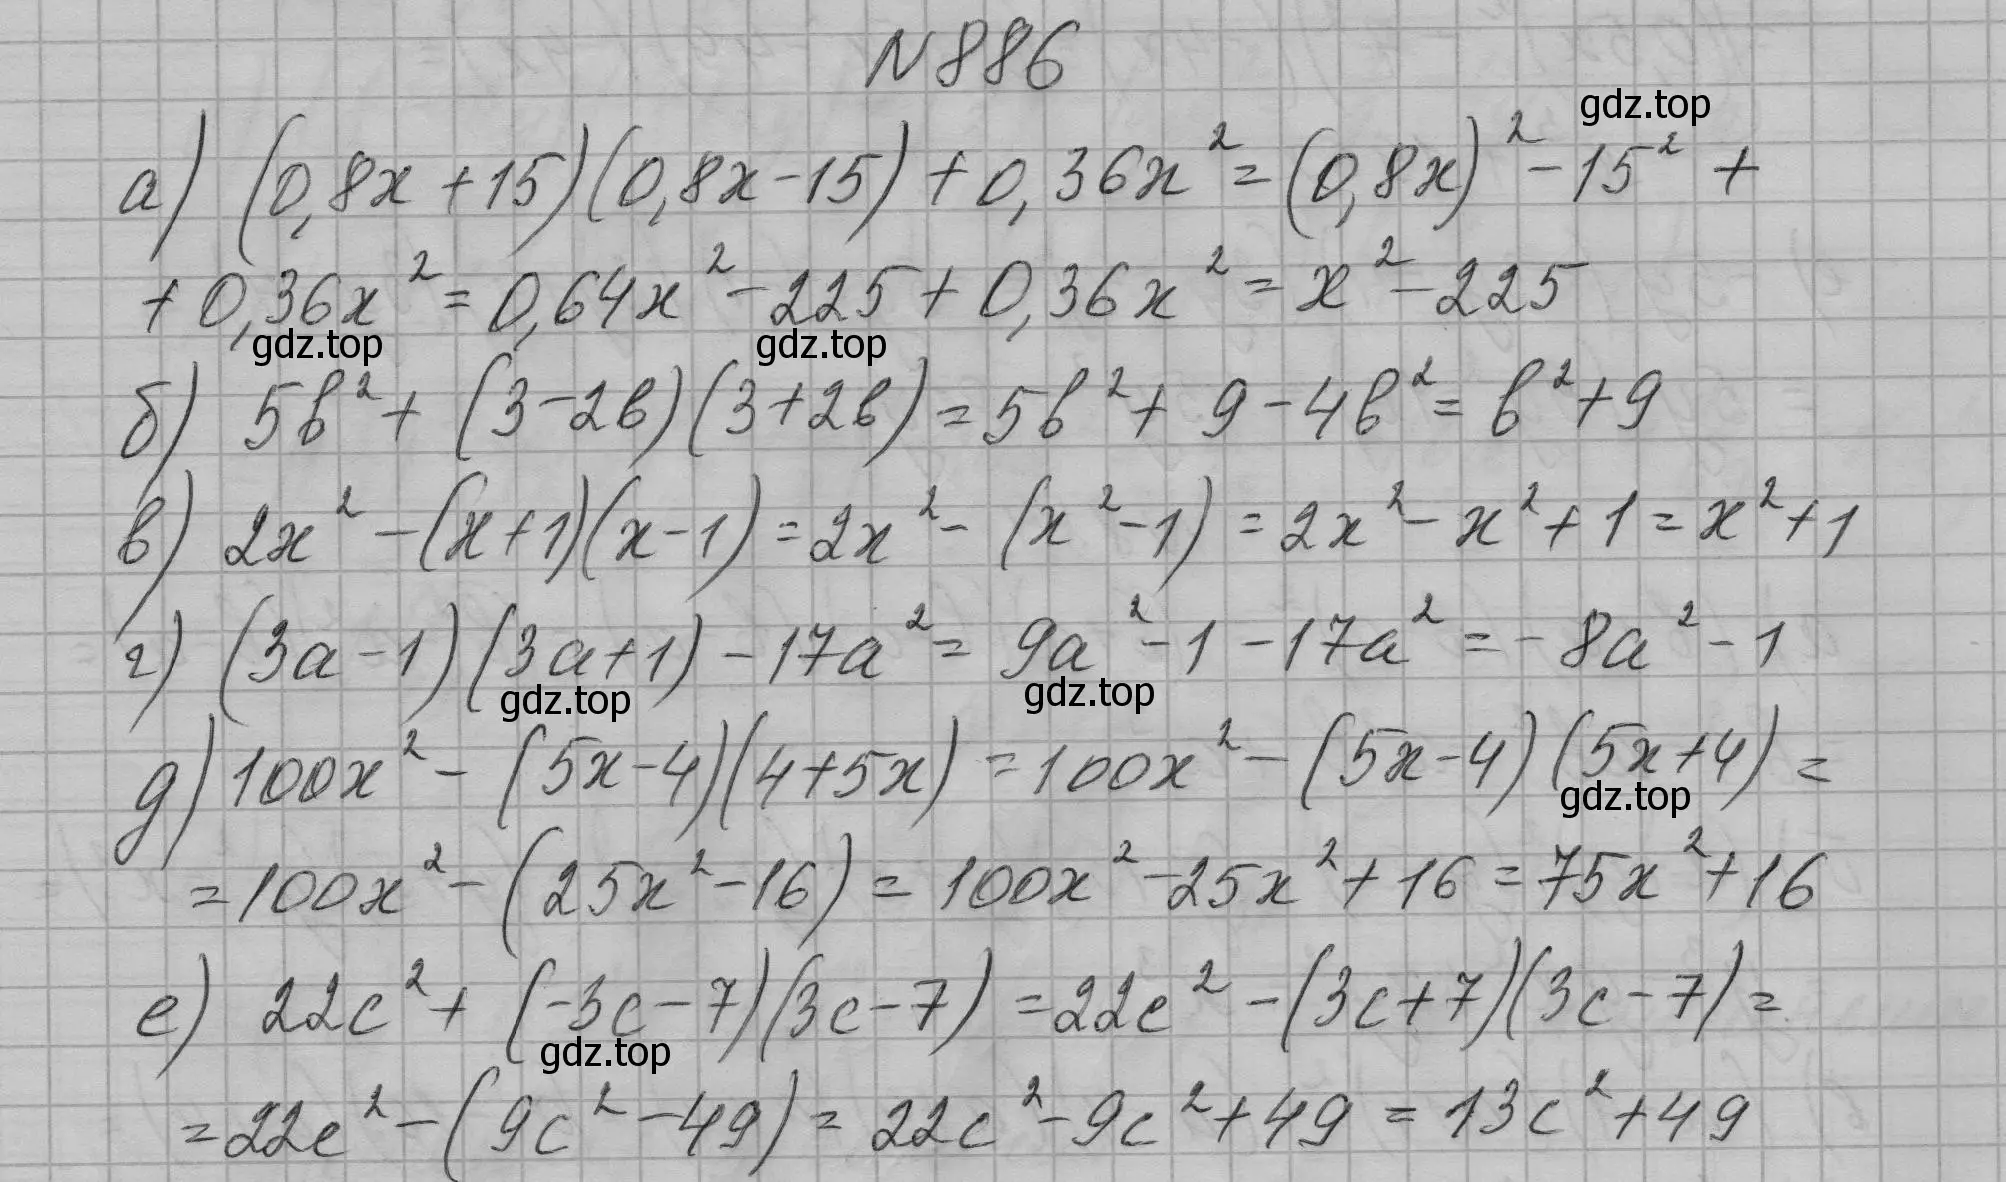 N 886
gdz.top
а) (0,8x+15)(0,8x-15)+0,36x²=(0,8x)²-15²+
+0,36x²=0,64x²-225+0,36x²=x²-225
gdz.top gdz.top
б) 5b²+(3-2b)(3+2b)=5b²+9-4b²=b²+9
в) 2x²-(x+1)(x-1)=2x²-(x²-1)=2x²-x²+1=x²+1
г) (3a-1)(3a+1)-17a²=9a²-1-17a²=-8a²-1
gdz.top gdz.top
д) 100x²-(5x-4)(4+5x)=100x²-(5x-4)(5x+4)=
gdz.top
=100x²-(25x²-16)=100x²-25x²+16=75x²+16
е) 22c²+(-3c-7)(3c-7)=22c²-(3c+7)(3c-7)=
gdz.top
=22c²-(9c²-49)=22c²-9c²+49=13c²+49